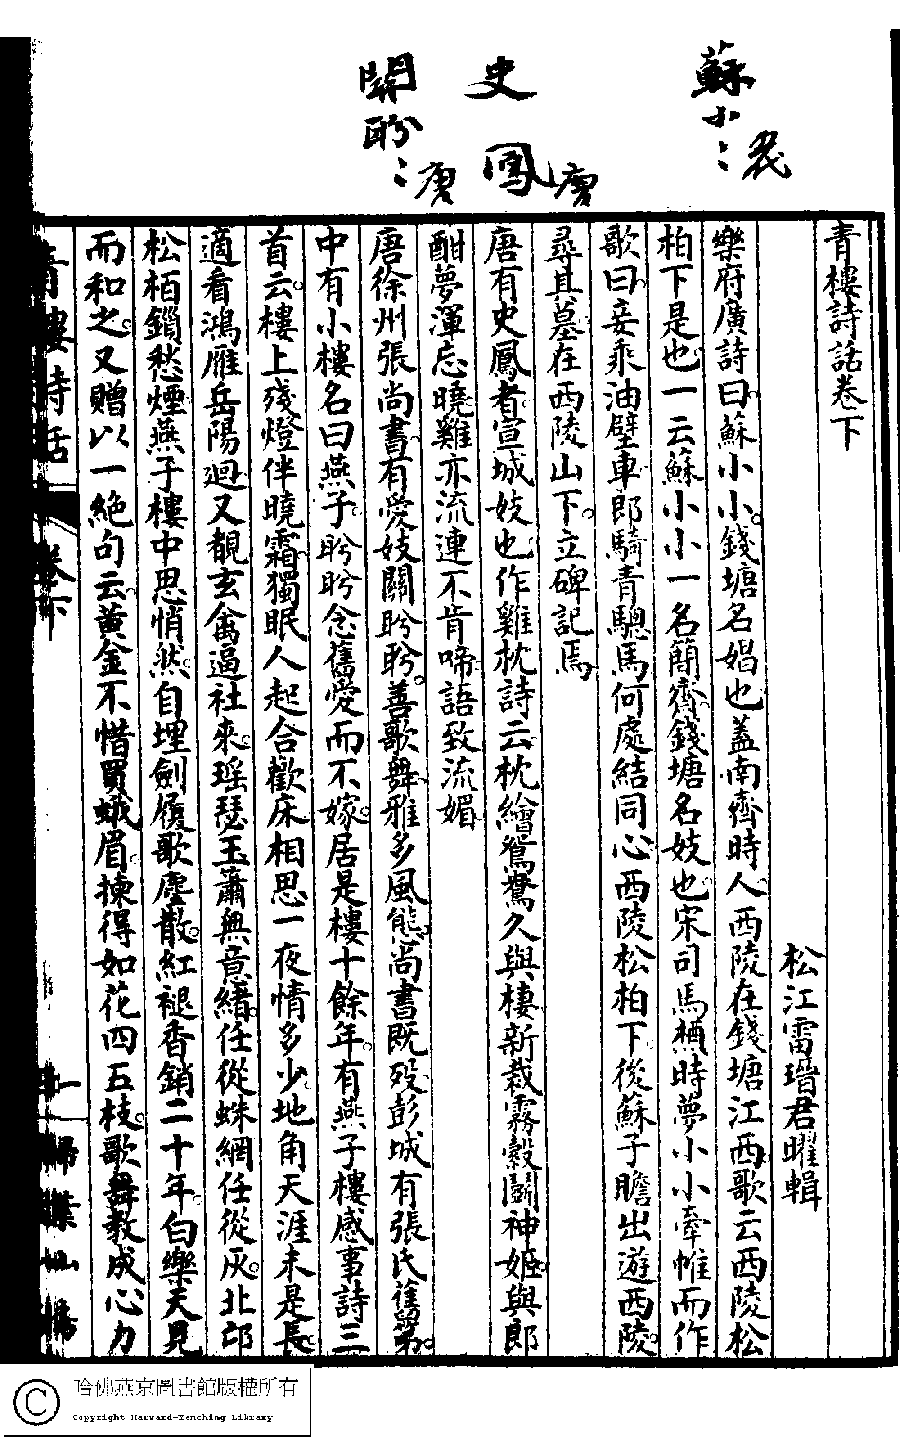 蘇小〻
史鳳 唐
關盼〻 唐
青樓詩話卷下
松江雷瑨君曜輯
樂府廣詩曰蘇小小錢塘名娼也蓋南齊時人西陵在錢塘江西歌云西陵松
柏下是也一云蘇小小一名簡齋錢塘名妓也宋司馬槱時夢小小牽帷而作
歌曰妾乘油壁車郎騎青驄馬何處結同心西陵松柏下後蘇子瞻出遊西陵
尋其墓在西陵山下立碑記焉
唐有史鳳者宣城妓也作雞枕詩云枕繪鴛鴦久與棲新裁霧縠鬬神姬與郎
酣夢渾忘曉雞亦流連不肯啼語致流媚
唐徐州張尚書有愛妓關盼盼善歌舞雅多風態尚書既歿彭城有張氏舊第
中有小樓名曰燕子盼盼念舊愛而不嫁居是樓十餘年有燕子樓感事詩三
首云樓上殘燈伴曉霜獨眠人起合歡床相思一夜情多少地角天涯未是長
適看鴻雁岳陽迴又覩玄禽逼社來瑶瑟玉簫無意緒任從蛛網任從灰北邙
松栢鎖愁煙燕子樓中思悄然自埋劍履歌塵散紅褪香銷二十年白樂天見
而和之又贈以一絕句云黃金不惜買蛾眉揀得如花四五枝歌舞教成心力
青樓詩話
卷下
一
掃葉山房
哈佛燕京圖書館版權所有
Copyright Harvard-Yenching Library